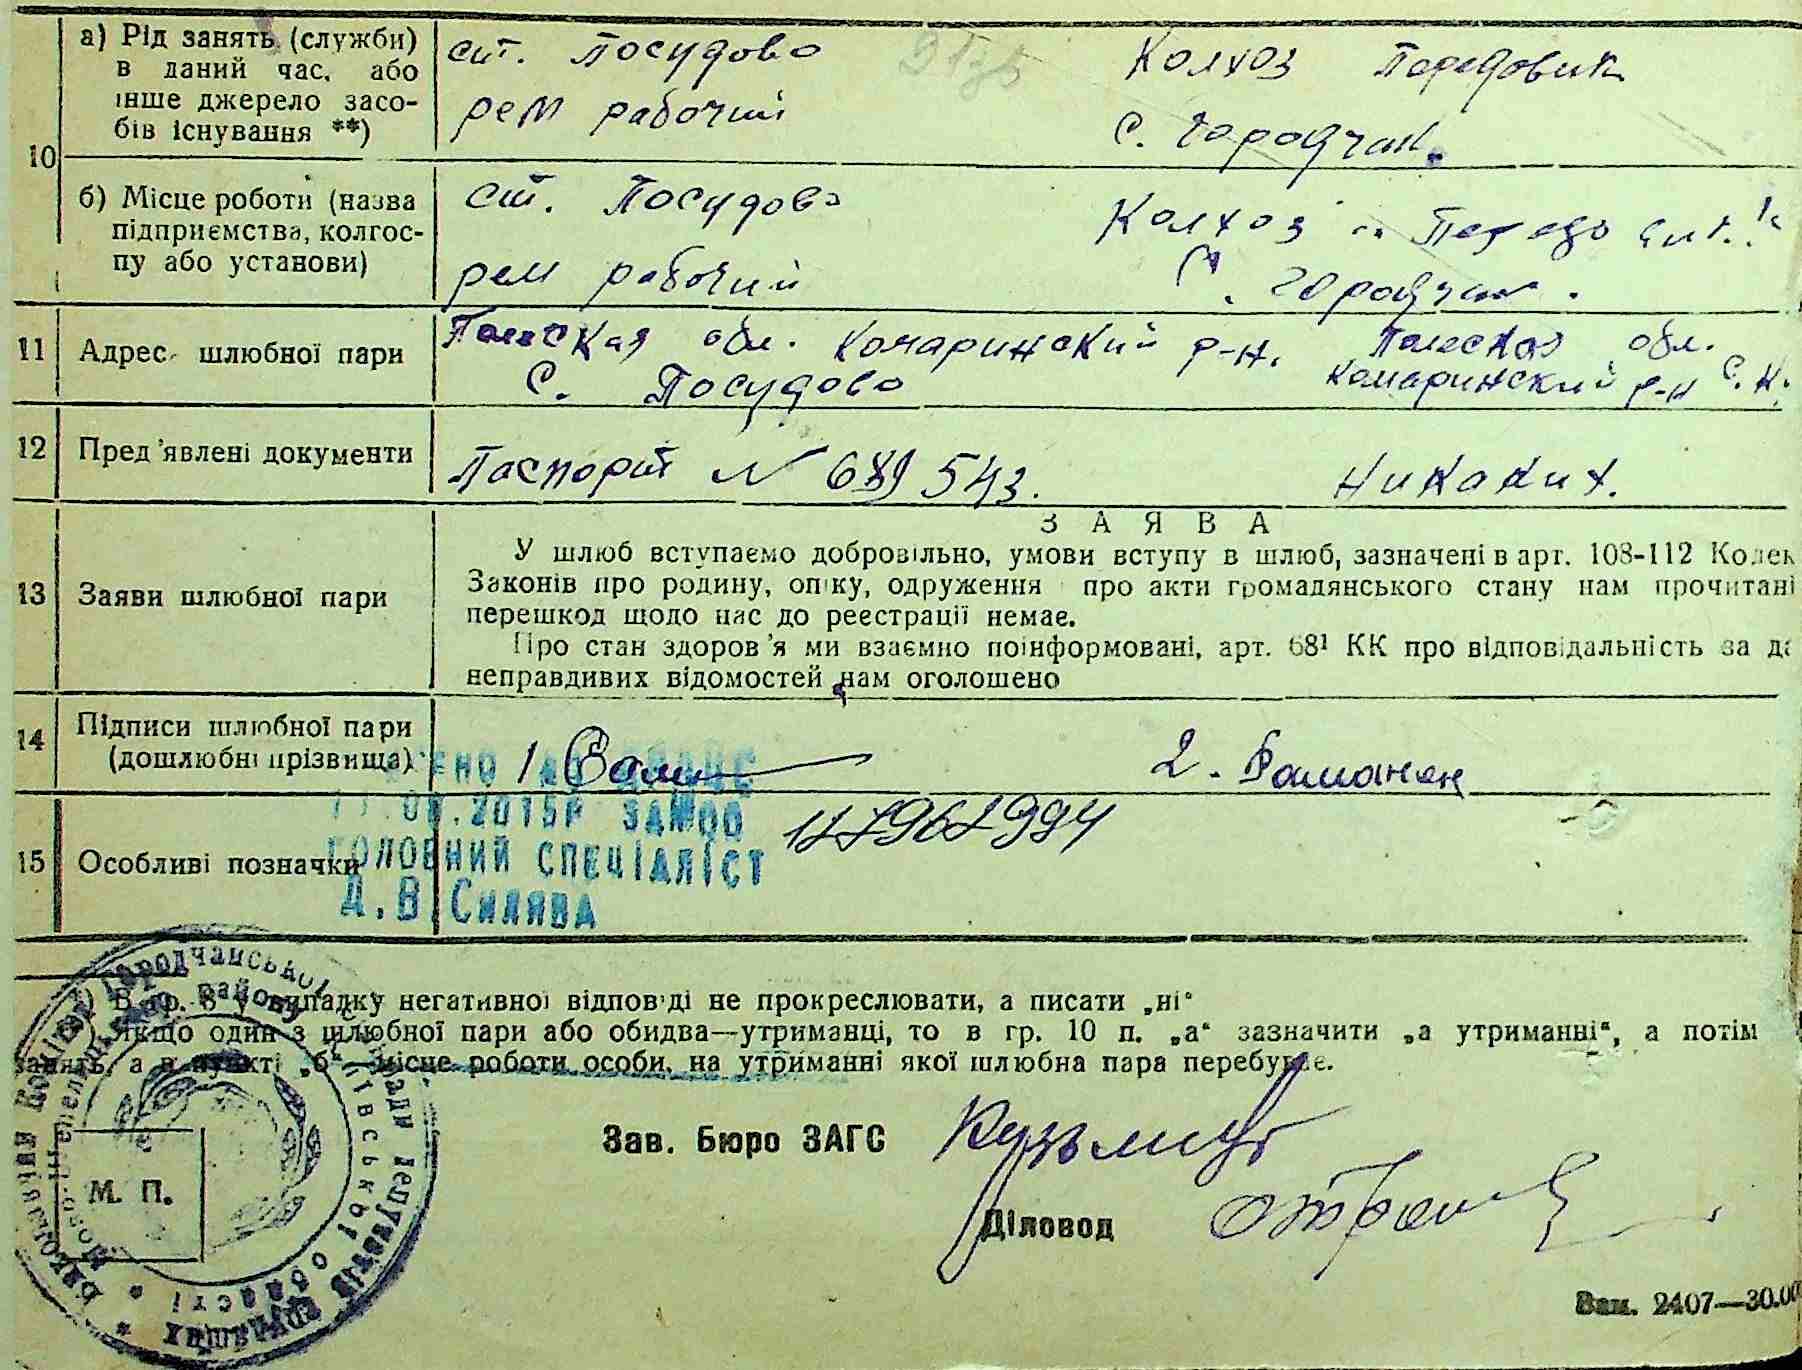 10
а) Рід занять (служби)
в даний час, або
інше джерело засо-
бів існування **)
ст. Посудово
рем рабочий
Колхоз Передовик
с. Городчан.
б) Місце роботи (назва
підприємства, колгос-
пу або установи)
ст. Посудово
рем рабочий
Колхоз
с. Городчан.
11 Адрес шлюбної пари
Полеская обл. Комаринский р-н.
с. Посудово
Полеская обл.
Комаринский р-н с. К.
12 Пред'явлені документи
Паспорт N 689543.
Никаких.
13 Заяви шлюбної пари
ЗАЯВА
У шлюб вступаємо добровільно, умови вступу в шлюб, зазначені в арт. 108-112 Колек
Законів про родину, опіку, одруження про акти громадянського стану нам прочитані
перешкод щодо нас до реєстрації немає.
Про стан здоров'я ми взаємно поінформовані, арт. 68¹ КК про відповідальність за да
неправдивих відомостей нам оголошено
14 Підписи шлюбної пари
(дошлюбні прізвища)
1
2.
15 Особливі позначки
ЕНО ДО ДРАЦС
.08.2015Р ЗА№00
ГОЛОВНИЙ СПЕЦІАЛІСТ
Д.В.СИЛЯВА
В гр. 8 у випадку негативної відповіді не прокреслювати, а писати „ні“
Якщо один з шлюбної пари або обидва—утриманці, то в гр. 10 п. „а“ зазначити „а утриманні“, а потім
занять, а в пункті „б“ місце роботи особи, на утриманні якої шлюбна пара перебуває.
М. П.
Зав. Бюро ЗАГС
Діловод
Зам. 2407—30.00